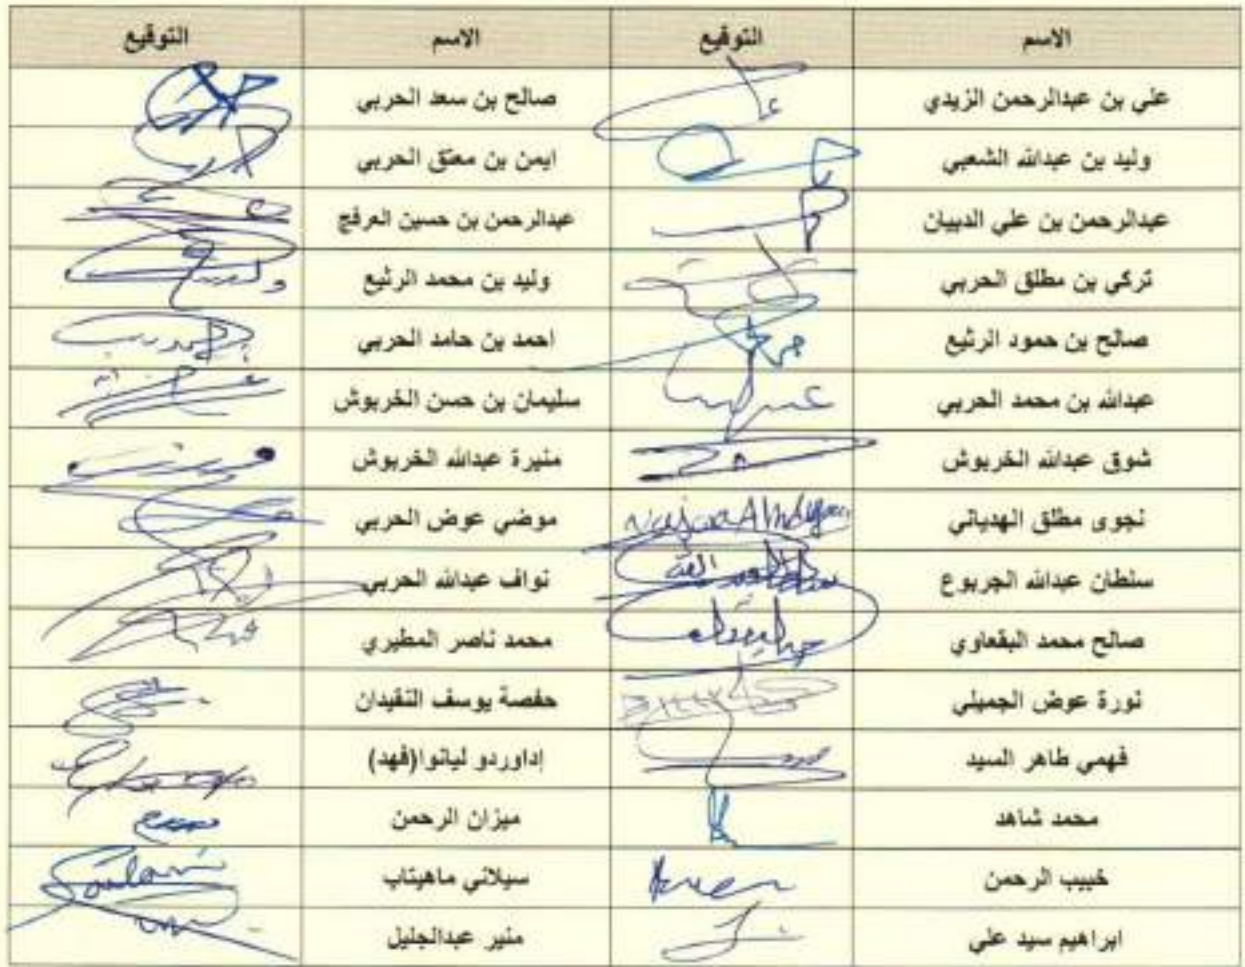 الاسم التوقيع الاسم التوقيع
علي بن عبدالرحمن الزيدي صالح بن سعد الحربي
وليد بن عبدالله الشعبي ايمن بن معتق الحربي
عبدالرحمن بن علي الدبيان عبدالرحمن بن حسين العرفج
تركي بن مطلق الحربي وليد بن محمد الرثيع
صالح بن حمود الرثيع احمد بن حامد الحربي
عبدالله بن محمد الحربي سليمان بن حسن الخربوش
شوق عبدالله الخربوش منيرة عبدالله الخربوش
نجوى مطلق الهدياني موضي عوض الحربي
سلطان عبدالله الجربوع نواف عبدالله الحربي
صالح محمد البقعاوي محمد ناصر المطيري
نورة عوض الجميلي حفصة يوسف النقيدان
فهمي طاهر السيد إداوردو ليانوا(فهد)
محمد شاهد ميزان الرحمن
خبيب الرحمن سيلاني ماهيتاب
ابراهيم سيد علي منير عبدالجليل